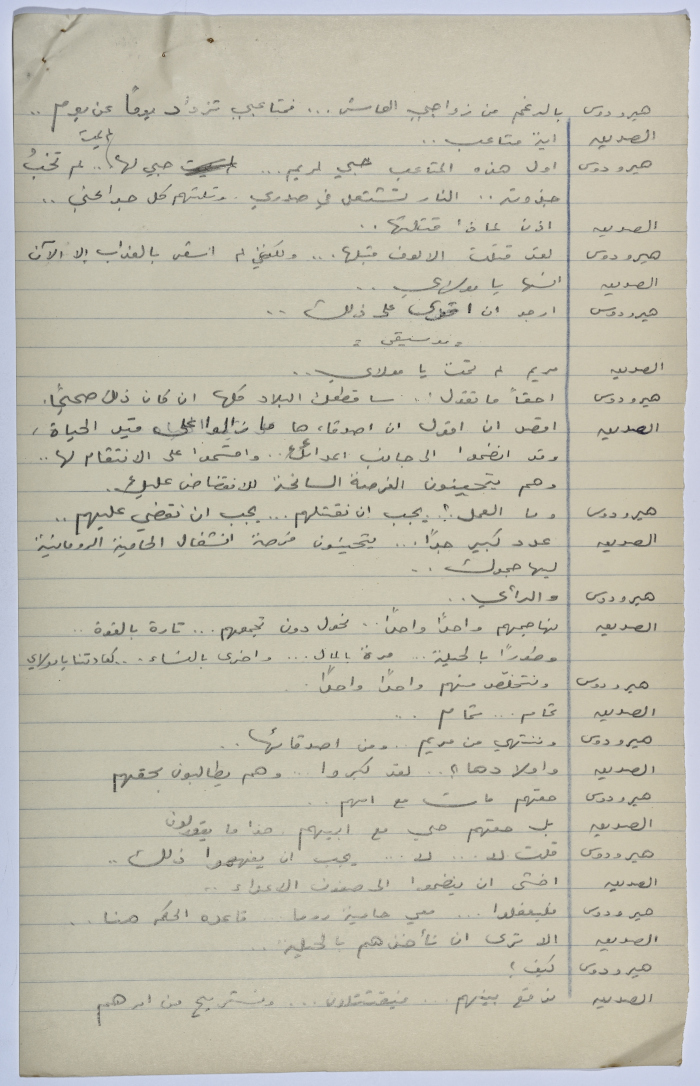 هيرودوس بالرغم من زواجي الهامش ... فمتاعبي تزداد يوماً عن يوم ..
الصديق اية متاعب ..
هيرودوس اول هذه المتاعب حبي لمريم ... حبي لها .. لم تخبُ
جذوته .. النار تشتعل في صدري . وتلتهم كل جوانحي ..
الصديق اذن لماذا قتلتها ..
هيرودوس لقد قتلت الالوف قبلها ... ولكنني لم اشقى بالعذاب إلا الآن
الصديق انسها يا مولاي ..
هيرودوس ارجو ان اقوى على ذلك ..
= موسيقى =
الصديق مريم لم تمت يا مولاي ..
هيرودوس احقاً ما تقول ! .. ساقطعك البلاد كلها ان كان ذلك صحيحاً .
الصديق اقصد ان اقول ان اصدقاءها ما زالوا على قيد الحياة ،
وقد انضموا الى جانب اعدائك .. واقسموا على الانتقام لها ..
وهم يتحينون الفرصة السانحة للانقضاض عليك ..
هيرودوس وما العمل ؟ يجب ان نقتلهم ... يجب ان نقضي عليهم ..
الصديق عدد كبير جداً ... يتحينون فرصة انشغال الحامية الرومانية
ليهاجموك ..
هيرودوس والرأي ..
الصديق نهاجمهم واحداً واحداً .. نحول دون تجمعهم ... تارة بالقوة ..
وطوراً بالحيلة ... مرة بالمال ... واخرى بالنساء ... كعادتنا يا مولاي
هيرودوس ونتخلص منهم واحداً واحداً ..
الصديق تمام ... تمام ..
هيرودوس وننتهي من مريم .. ومن اصدقائها ..
الصديق واولادها ؟ .. لقد كبروا ... وهم يطالبون بحقهم
هيرودوس حقهم مات مع امهم ..
الصديق بل حقهم حي مع ابيهم . هذا ما يقولون
هيرودوس قلت لا ... لا ... يجب ان يفهموا ذلك ..
الصديق اخشى ان ينضموا الى صفوف الاعداء ..
هيرودوس فليفعلوا ... معي حامية روما ... قاعدة الحكم هنا ..
الصديق الا ترى ان نأخذهم بالحيلة ..
هيرودوس كيف ؟
الصديق نوقع بينهم ... فيقتتلون ... ونستريح من امرهم